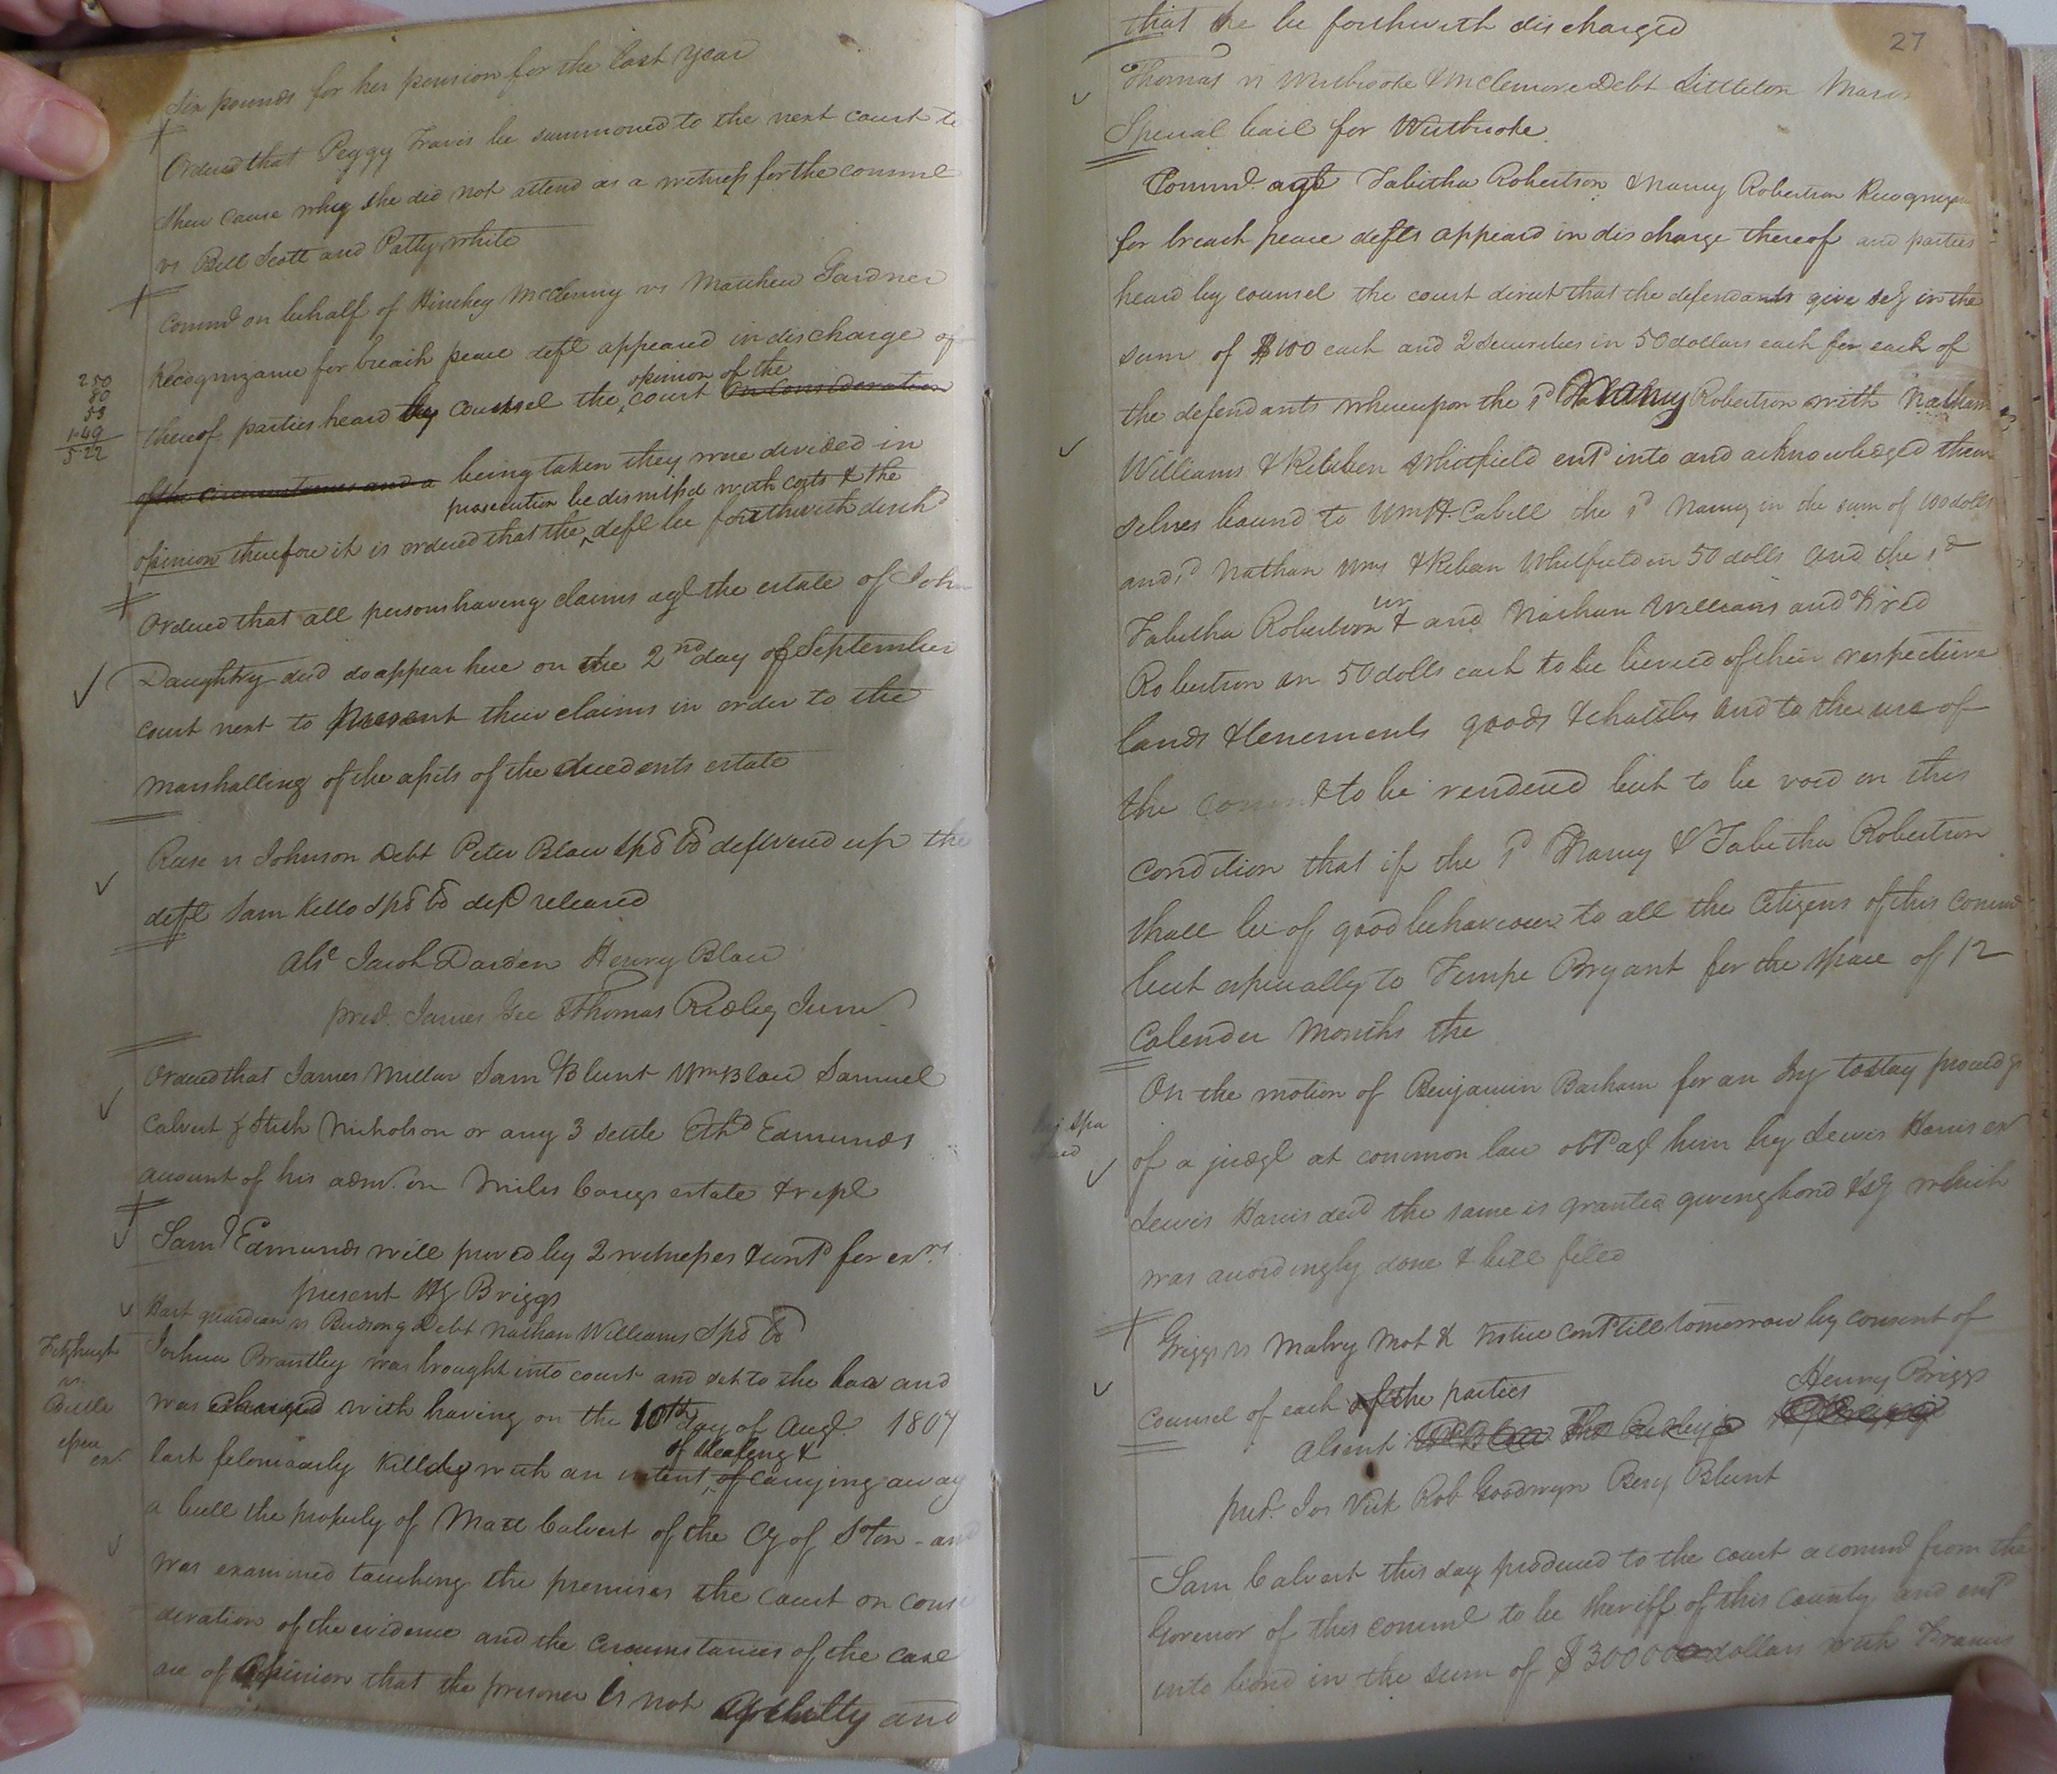 Six pounds for her pension for the last year
Ordered that Peggy Travis be summoned to the next court to
shew cause why she did not attend as a witness for the commw
vs Bell Scott and Patty white
Commw on behalf of Hinchey McClenny vs Matthew Gardner
Recognizance for breach peace deft appeared in discharge of
opinion of the
thereof parties heard by counsel the court in consideration
250
80
53
1-49
522
of the circumstances and a being taken they were divided in
prosecution be dismissd with costs & the
opinion therefore it is ordered that the deft be forthwith disch
Ordered that all persons having claims agt the estate of John
Daughtry decd do appear here on the 2nd day of September
court next to present their claims in order to the
marshalling of the assets of the decedents estate
Rose vs Johnson Debt Peter Blow Spl bl delivered up the
deft Sam Kello Spl bl deft released
Abst Jacob Darden Henry Blow
prest. James Gee & Thomas Ridley Junr
Ordered that James Millar Sam Blunt Wm Blow Samuel
Calvert & Nicholson or any 3 settle Edmunds
account of his adm. on Miles Carys estate & rept
Saml Edmunds will proved by 2 witnesses & contd for exrs
present Hy Briggs
Hart guardian vs Birdsong Debt Nathan Williams Spl bl
Joshua Brantley was brought into court and set to the bar and
Fitzhugh
vs
was charged with having on the 10th day of Augt. 1807
of stealing &
last feloniously killd with an intent of carrying away
a bull the property of Matt Calvert of the Cy of Soton - and
was examined touching the premises the court on consi
deration of the evidence and the circumstances of the case
are of opinion that the prisoner is not guilty and
27
that he be forthwith discharged
Thomas vs Westbrooke & McLemore Debt Littleton Mason
Special bail for Westbrooke
Commd. agt Tabitha Robertson & Nancy Robertson Recognizan
for breach peace defts appeard in discharge thereof and parties
heard by counsel the court direct that the defendants give secy in the
sum of $100 each and 2 securities in 50 dollars each for each of
the defendants whereupon the sd Nancy Robertson with Nathan
Williams & Reuben Whitfield entd into and acknowledged them
selves bound to Wm H. Cabell the sd Nancy in the sum of 100 dolls
and sd Nathan Wms & Reben Whitfield in 50 dolls and the sd
Tabitha Robertson & and Nathan Williams and Fred
Robertson in 50 dolls each to be levied of their respective
lands & tenements goods & chattles and to the use of
the comm & to be rendered but to be void on this
condition that if the sd Nancy & Tabitha Robertson
shall be of good behaviour to all the citizens of this commw
but especially to Tempe Bryant for the space of 12
Calender months the
On the motion of Benjamin Barham for an Inj to stay proceedgs
of a judgt at common law obtd agt him by Lewis Harris exr
Lewis Harris decd the same is granted giving bond & sy which
was accordingly done & bill filed
Griggs vs Mabry Mot & notice contd till tomorrow by consent of
counsel of each of the parties
Henry Briggs
absent Wm Blow Tho Ridley jr
prest. Jos Vick Rob Goodwyn Benj Blunt
Sam Calvert this day produced to the court a commn from the
Govenor of this commw to be sheriff of this county and entd
into bond in the sum of $30000 dollars with Francis